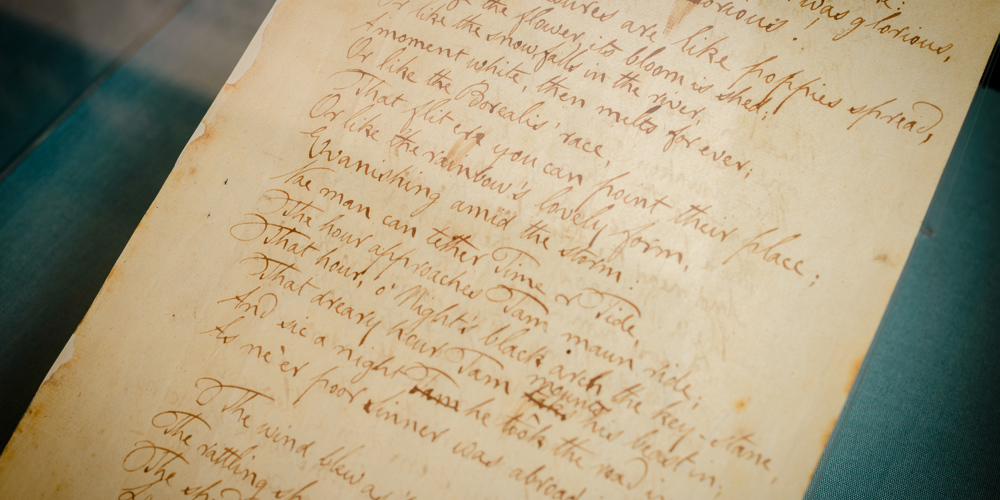 was glorious,
ures are like poppies spread,
the flower, its bloom is shed;
Or like the snow falls in the river,
A moment white, then melts forever;
Or like the Borealis' race,
That flit ere you can point their place;
Or like the rainbow's lovely form,
Evanishing amid the storm.
Nae man can tether Time r Tide,
The hour approaches Tam maun ride;
That hour, o' Night's black arch the key-stane,
That dreary hour Tam mounts his beast in;
And sic a night Tam he took the road
As ne'er poor sinner was abroad
The wind blew as
The rattling sh
The